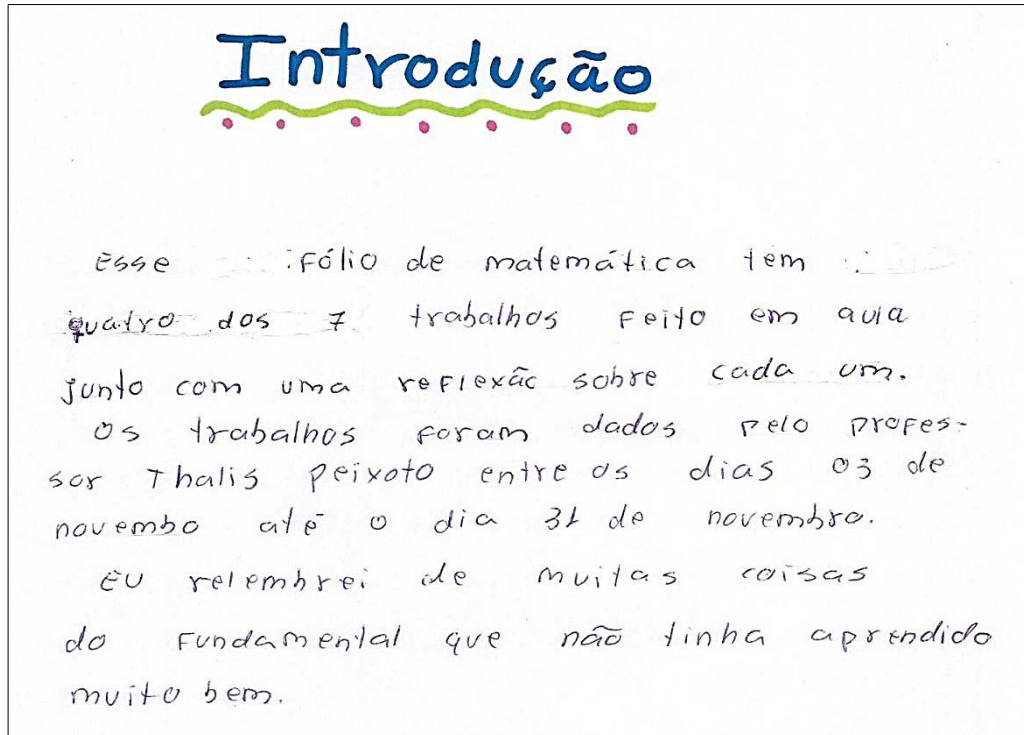 Introdução
Esse fólio de matemática tem
quatro dos 7 trabalhos feito em aula
junto com uma reflexão sobre cada um.
Os trabalhos foram dados pelo profes-
sor Thalis Peixoto entre os dias 03 de
novembo até o dia 31 de novembro.
Eu relembrei de muitas coisas
do fundamental que não tinha aprendido
muito bem.